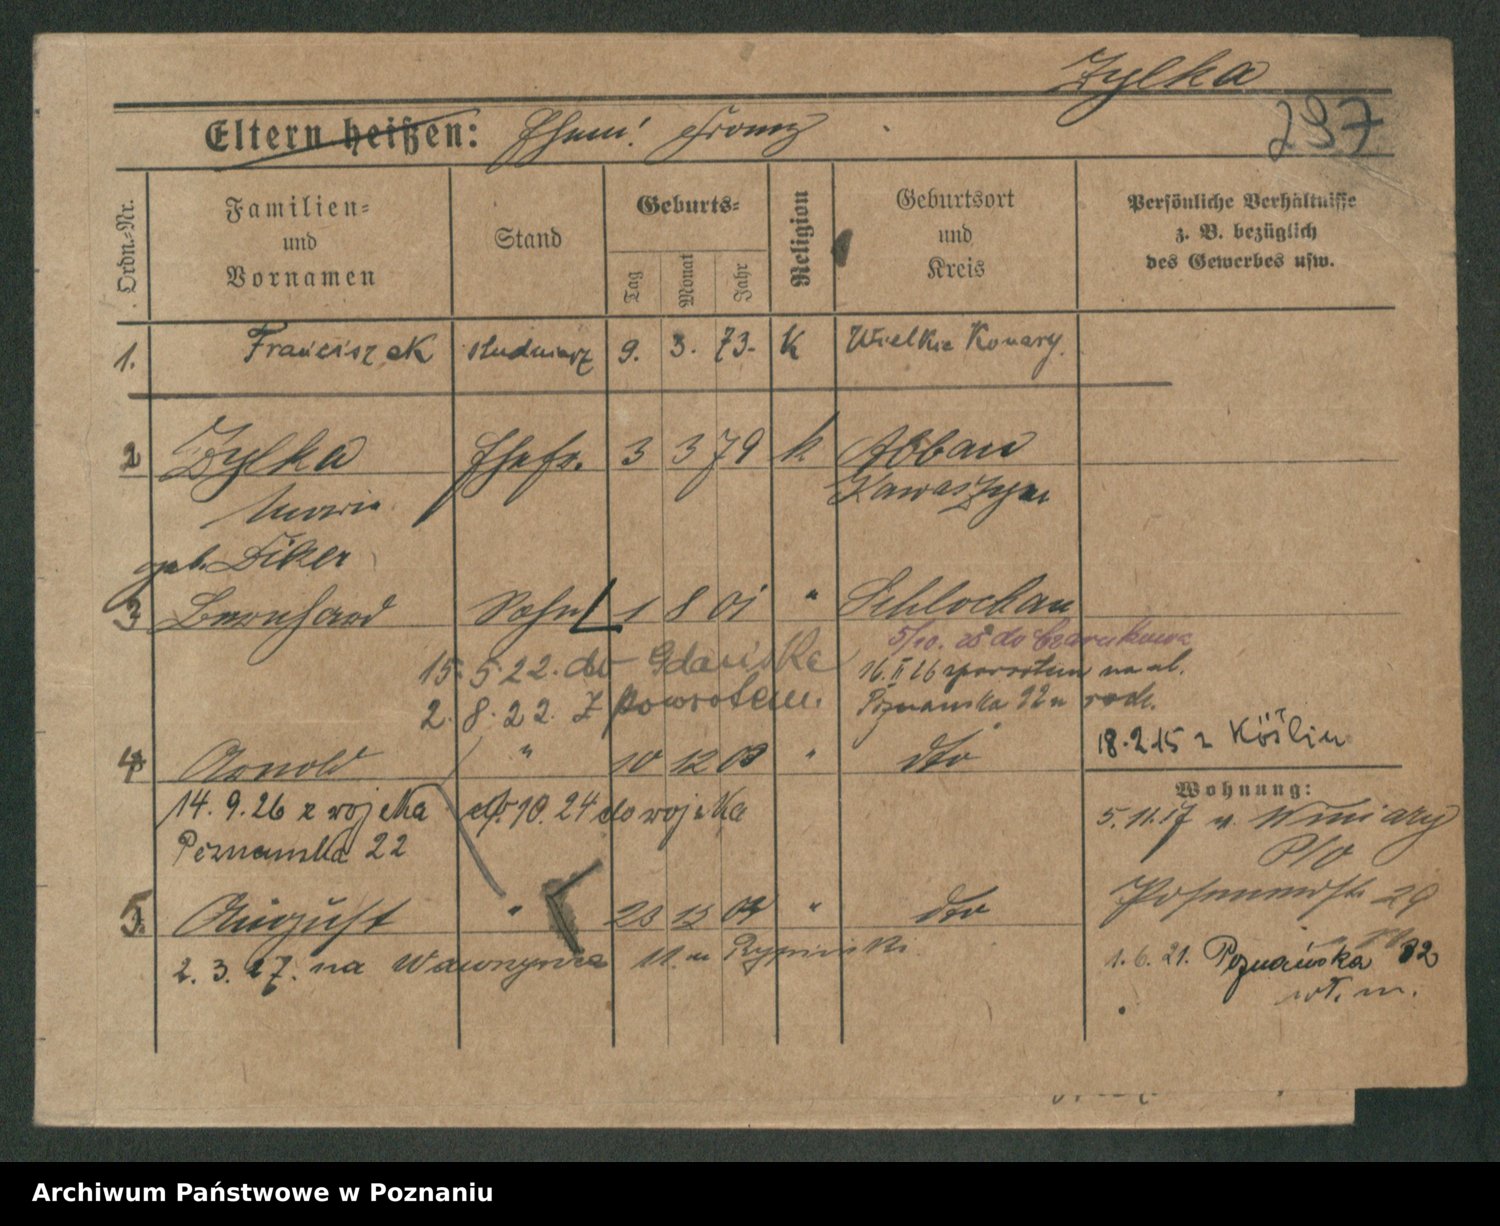 Zylka
237
Eltern heißen: Ehem. Franz
Ordn.-Nr.
Familien-
und
Vornamen
Stand
Geburts-
Tag
Monat
Jahr
Religion
Geburtsort
und
Kreis
Persönliche Verhältnisse
z. B. bezüglich
des Gewerbes usw.
1. Franciszek studniarz 9. 3. 73. K Wielkie Konary.
2 Zylka Ehefr. 3 3 79 k Abbau
Maria
geb. Diker
3 Bernhard Sohn 1 8 01 " Schlochau
5/10. 25 do Czarnkowa
15. 5. 22. do Gdańska
16. II 26 na ul.
2. 8. 22. z powrotem.
Poznańska 22
18. 2. 15 Köslin
4 Arnold " 10 12 " dto
Wohnung:
14. 9. 26 z wojska 10. 24 do wojska
5. 11. 17 Winiary
Poznańska 22
Posenerstr. 29
5. August " " dto
2. 3. 27. na Wawrzyńca 11.
1. 6. 21. Poznańska
Archiwum Państwowe w Poznaniu